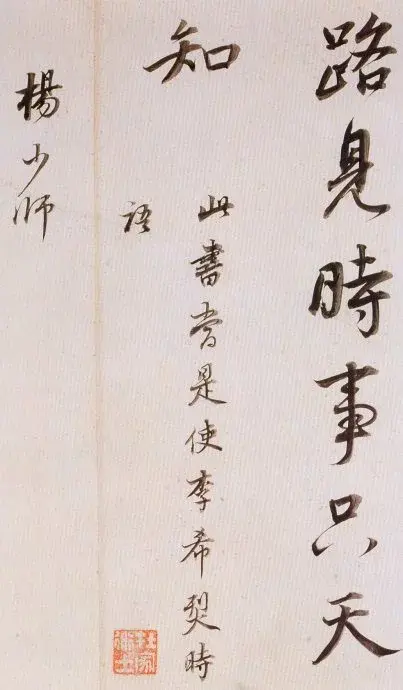 路見時事只天
知
此書當是使李希烈時
語
楊少師